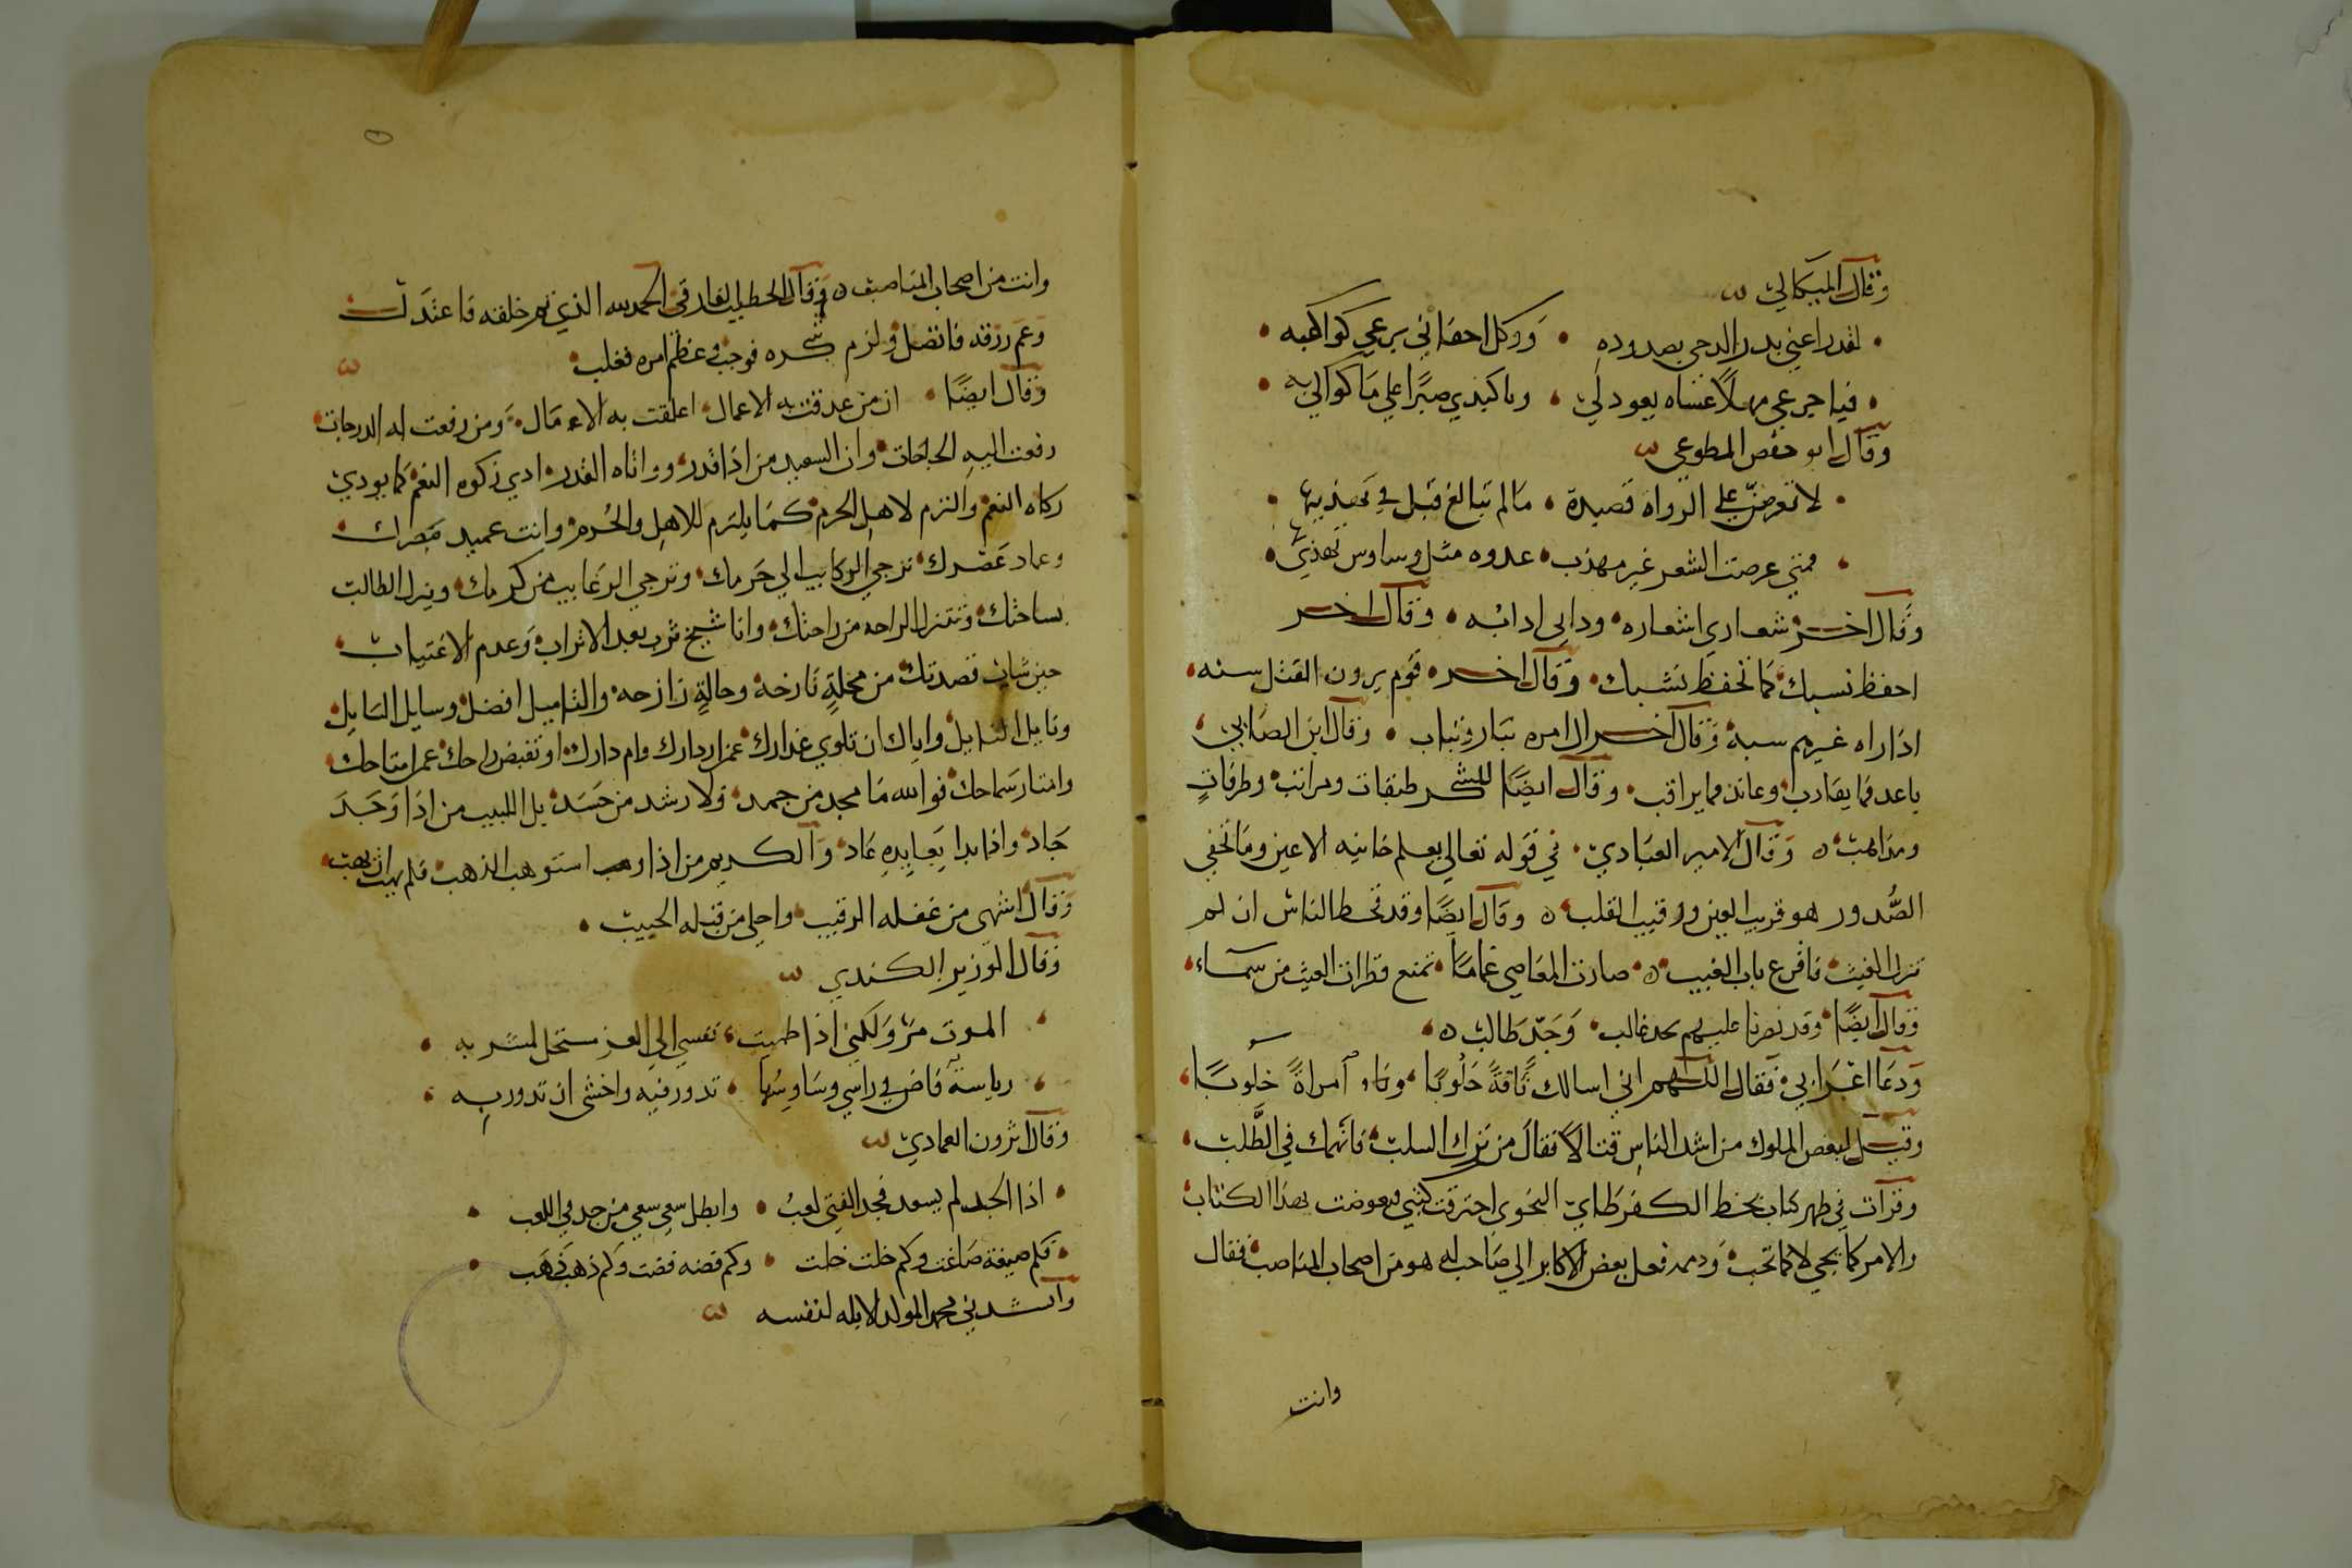 وقال الميكالي
لقد راعني بدر الدجى بصدوده • ووكل اجفاني برعي كواكبه •
فيا جزعي مهلا عساه يعود لي • ويا كبدي صبرا علي ما كواك به •
وقال ابو حفص المطوعي
لا تعرضن علي الرواه قصيدة • مالم تبالغ قبل في تهذيبها •
فمتي عرضت الشعر غير مهذب • عدوه مثل وساوس تهذي بها •
وقال اخر شعاري اشعاره • ودابي ادابه • وقال اخر
احفظ نسبك كما تحفظ نشبك • وقال اخر • قوم يرون القتل سنه •
اذا راه غيرهم سبة وقال اخر ال امره تبار وتباب • وقال ابن الصابي
باعد فما يقارب وعاند فما يراقب • وقال ايضا للشكر طبقات ومراتب وطرقات
ومذاهب ه وقال الامير العبادي • في قوله تعالي يعلم خاينه الاعين وما تخفي
الصدور هو قريب العين ورقيب القلب ه وقال ايضا وقد قحط الناس ان لم
تنزل الغيث فاقرع باب الغيب ه صارت المعاصي غماما • تمنع قطرات الغيث من سماء
وقال ايضا وقد نصرنا عليهم بحد غالب • وجد طالب ه
ودعا اعرابي فقال اللهم اني اسالك ناقة حلوبا • امراة خلوبا
وقيل لبعض الملوك من اشد الناس قتالا فقال من ترك السلب فانهمك في الطلب
وقرات في ظهر كتاب بخط الكفرطابي النحوي احترقت كتبي فعوضت بهذا الكتاب
والامر كما يجي لا كما تحب فعل بعض الاكابر الي صاحب له هو من اصحاب المناصب فقال
وانت
وانت من اصحاب المناصف ه وقال الخطيب الفارقي الحمد لله الذي خلقه فاعتدلت
وعم رزقه فاتصل ولزم شكره فوجب وعظم امره فغلب
وقال ايضا • ان من عدقت به الاعمال • اعلقت به الامال • ومن رفعت له الدرجات
رفعت اليه الحاجات • وان السعيد من اذا قدر وواتاه القدر ادي زكوه النعم كما يودي
زكاه النعم والتزم لاهل الكرم كما يلتزم للاهل والحرم وانت عميد مصرك
وعماد عصرك تزجي الركايب الي حرمك • وترجي الرغايب من كرمك • وينزل الطالب
بساحتك وتتنزل الراحه من راحتك • وانا شيخ ترب بعد الاتراب وعدم الاغتياب
حين شاب قصدتك من محلة نازحه وحالة رازحه والتاميل افضل وسايل السايل
ونايل النايل واياك ان تلوي عذارك عمن اردارك وام دارك او تقبض راحك عمن امتاحك
وامتار سماحك فوالله ما مجد من جمد ولا رشد من حسد بل اللبيب من اذا وجد
جاد واذا بدا بعايده عاد والكريم من اذا وهب استوهب الذهب فلم يهب ان يهب
وقال اشهي من غفله الرقيب واحلي من قبله الحبيب •
وقال الوزير الكندي
الموت مر ولكني اذا ظميت نفسي الي العز مستحل لمشربه •
رياسة فاض في راسي وساوسها • تدور فيه واخشي ان تدور به •
وقال اثرون العمادي
اذا الجد لم يسعد فجد الفتي لعب • وابطل سعي سعي من جد في اللعب •
فكم صيغة صاغت وكم خلت خلت • وكم قضه قضت وكم ذهب ذهب •
وانشدني محمد المولد الابله لنفسه